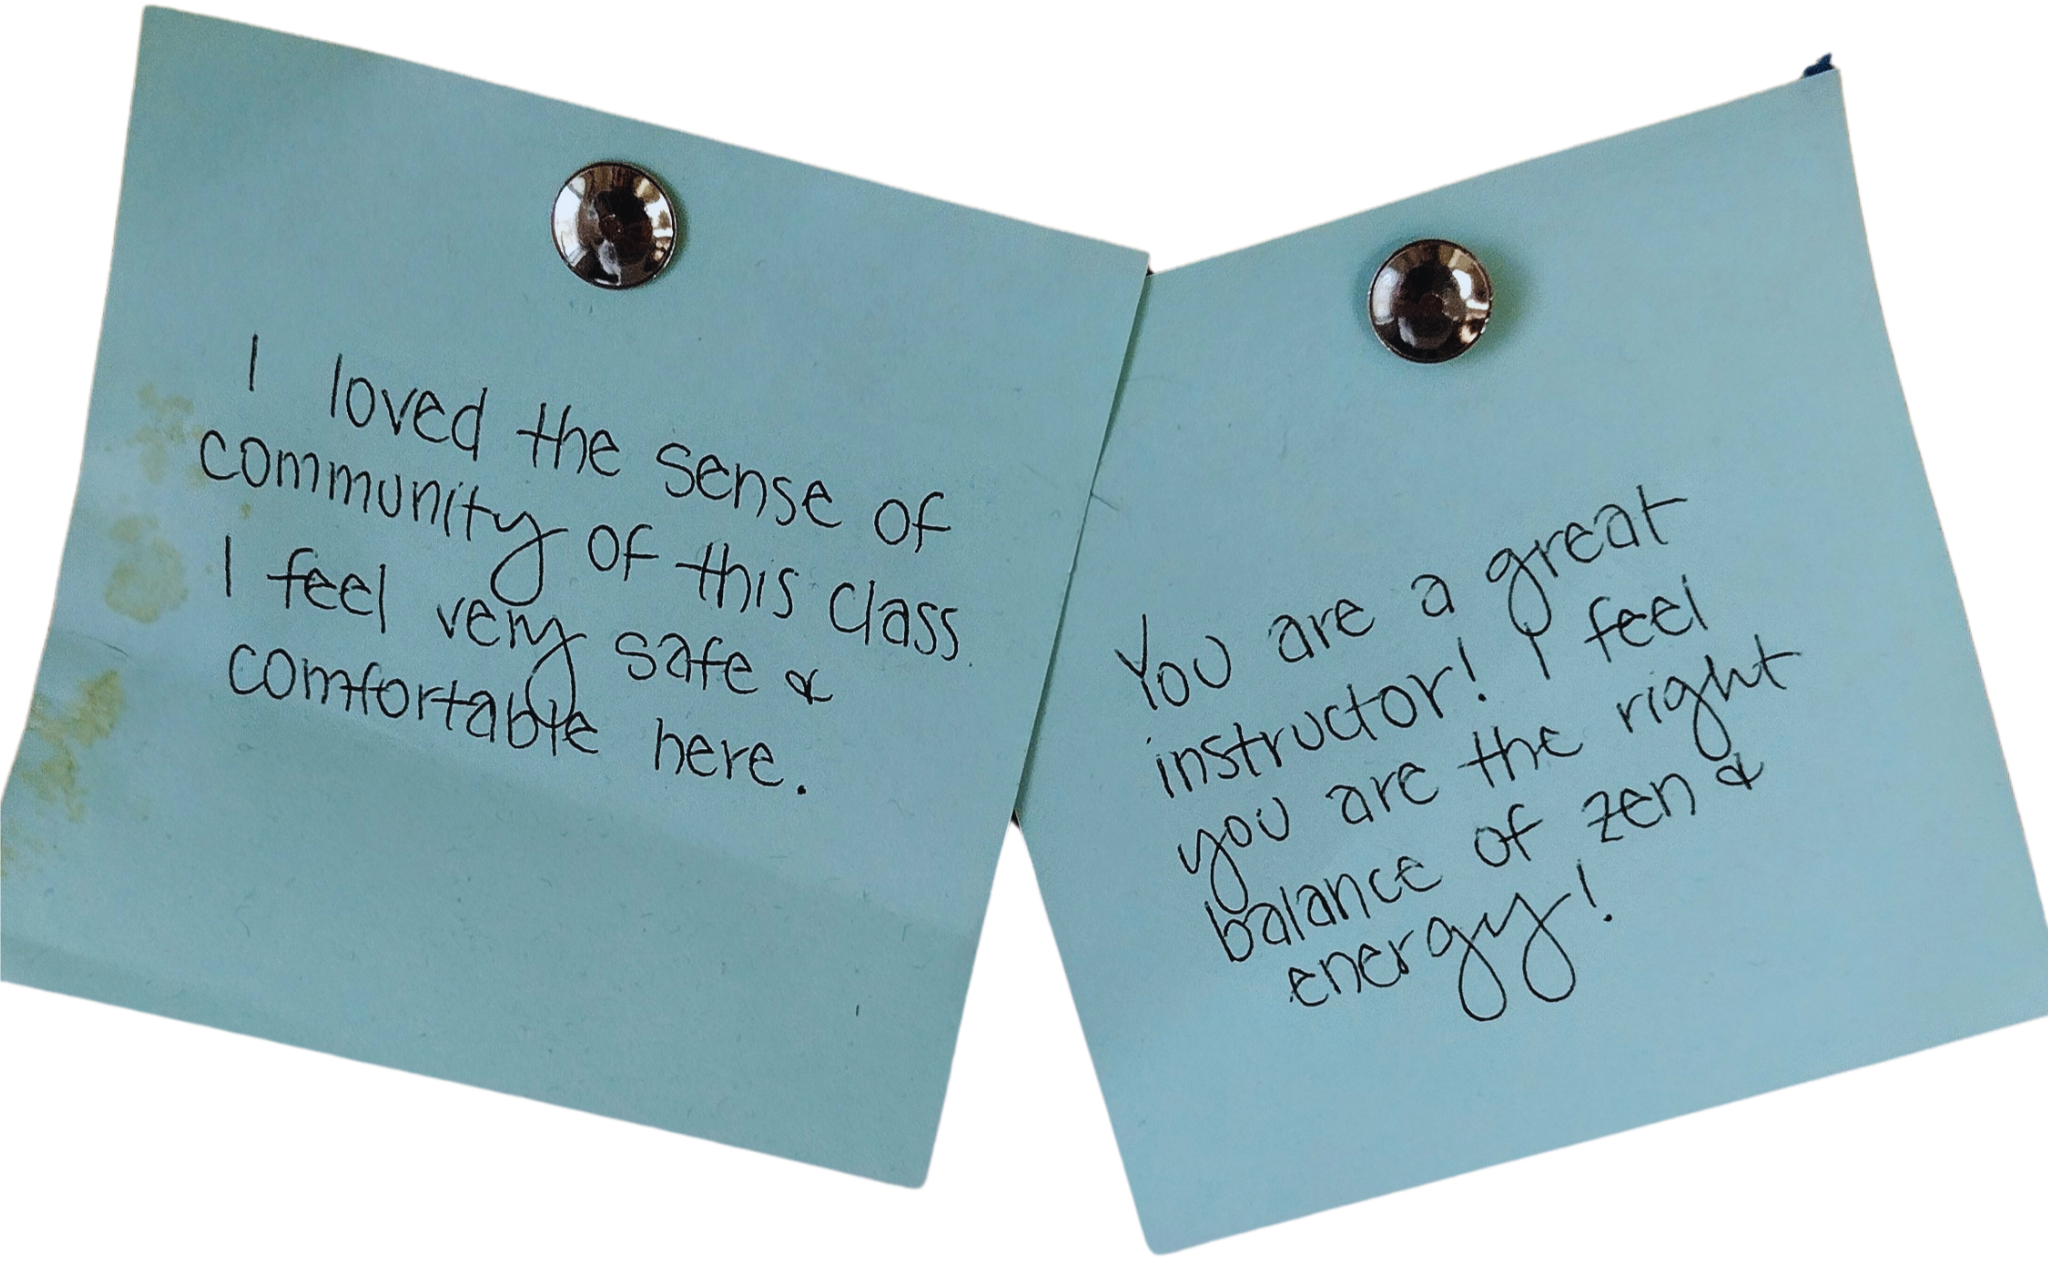 I loved the sense of
community of this class.
I feel very safe &
comfortable here.
You are a great
instructor! I feel
you are the right
balance of zen &
energy!